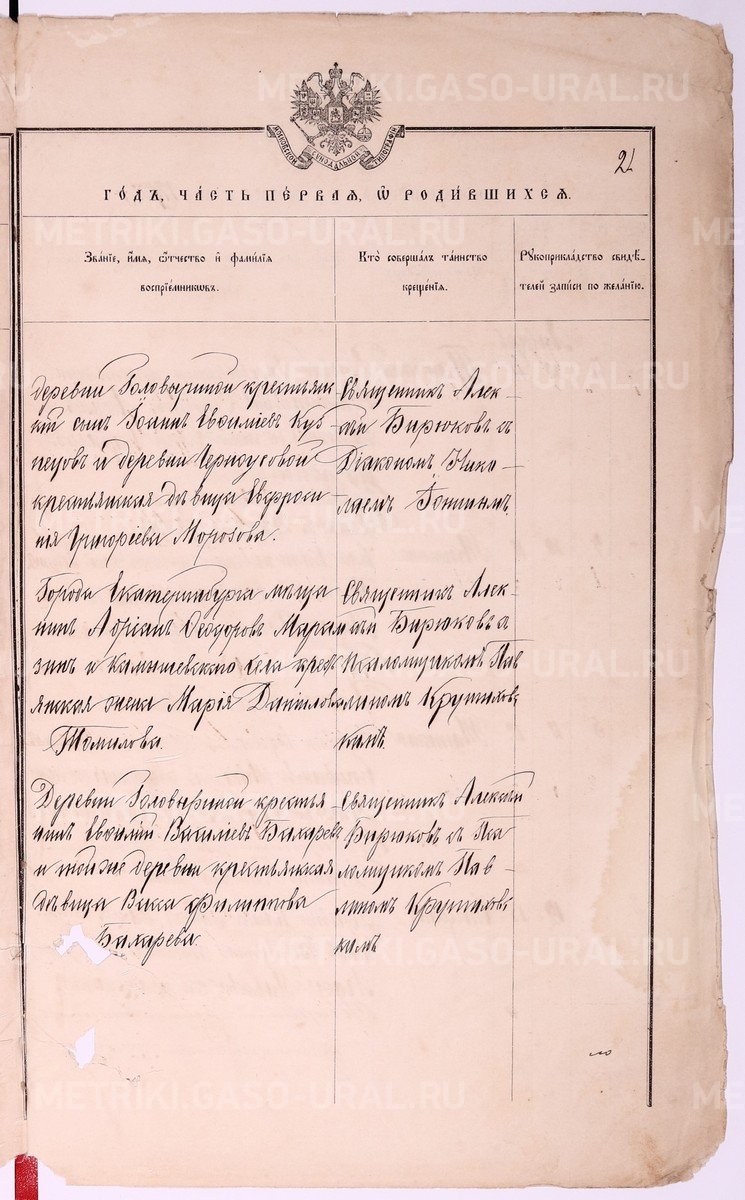 2
МОСКОВСКОЙ СѴНОДАЛЬНОЙ ТИПОГРАФІИ
ГО́ДЪ, ЧА́СТЬ ПЕ́РВАЯ, Ѡ҆ РОДИ́ВШИХСЯ.
Зва́ніе, и́мя, ѻ҆́тчество и҆ фами́лія
воспріе́мникѡвъ.
Кто̀ соверша́лъ та́инство
креще́нія.
Рꙋкоприкла́дство свидѣ́-
телей за́писи по жела́нію.
деревни Головыриной крестьян
кій сынъ Іоаннъ Евѳиміевъ Куз
нецовъ и деревни Черноусовой
крестьянская дѣвица Евфроси
нія Григоріева Морозова.
Священникъ Алек-
сѣй Бирюковъ съ
Діакономъ Нико-
лаемъ Гониным.
Города Екатеринбурга мѣща
нинъ Адріанъ Ѳеодоровъ Марам
зинъ и Камышевскаго села крест
янская жена Марія Даніилова
Томилова.
Священникъ Алек-
сѣй Бирюковъ съ
Псаломщикомъ Пав
линомъ Крутиховс
кимъ.
Деревни Головыриной крестья
нинъ Евѳимій Василіевъ Бахаревъ
и той же деревни крестьянская
дѣвица Васса Филиппова
Бахарева.
Священникъ Алексѣй
Бирюковъ съ Пса
ломщикомъ Пав-
линомъ Крутиховс
кимъ
METRIKI.GASO-URAL.RU